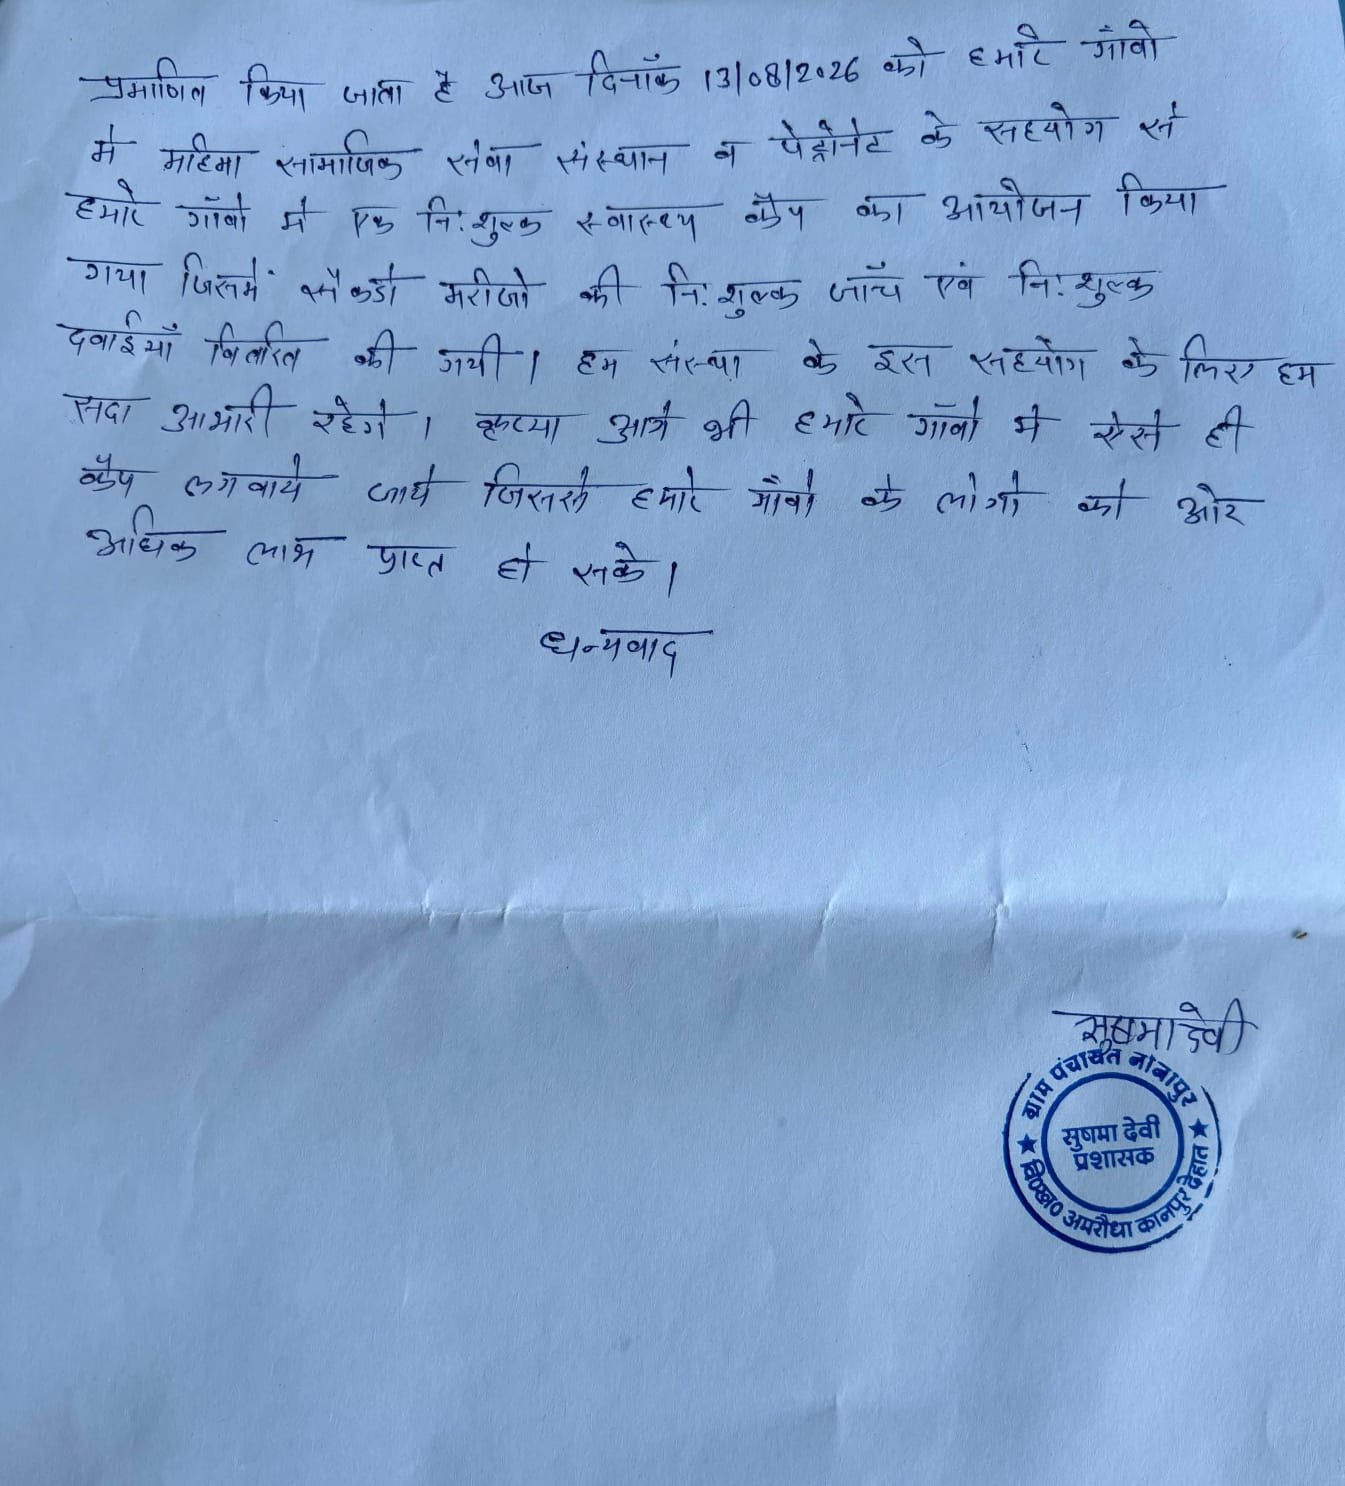 प्रमाणित किया जाता है आज दिनाँक 13/08/2026 को हमारे गाँवो
मे महिमा सामाजिक सेवा संस्थान व पेट्रोनेट के सहयोग से
हमारे गाँवो मे एक नि:शुल्क स्वास्थ्य कैंप का आयोजन किया
गया जिसमें सैकडो मरीजो की नि:शुल्क जाँच एवं नि:शुल्क
दवाईयाँ वितरित की गयी। हम संस्था के इस सहयोग के लिए हम
सदा आभारी रहेगे। कृप्या आगे भी हमारे गाँवो मे ऐसे ही
कैंप लगवाये जाये जिससे हमारे गाँवो के लोगो को ओर
अधिक लाभ प्राप्त हो सके।
धन्यवाद
सुषमा देवी
ग्राम पंचायत नाबापुर
सुषमा देवी
प्रशासक
वि०ख० अमरौधा कानपुर देहात